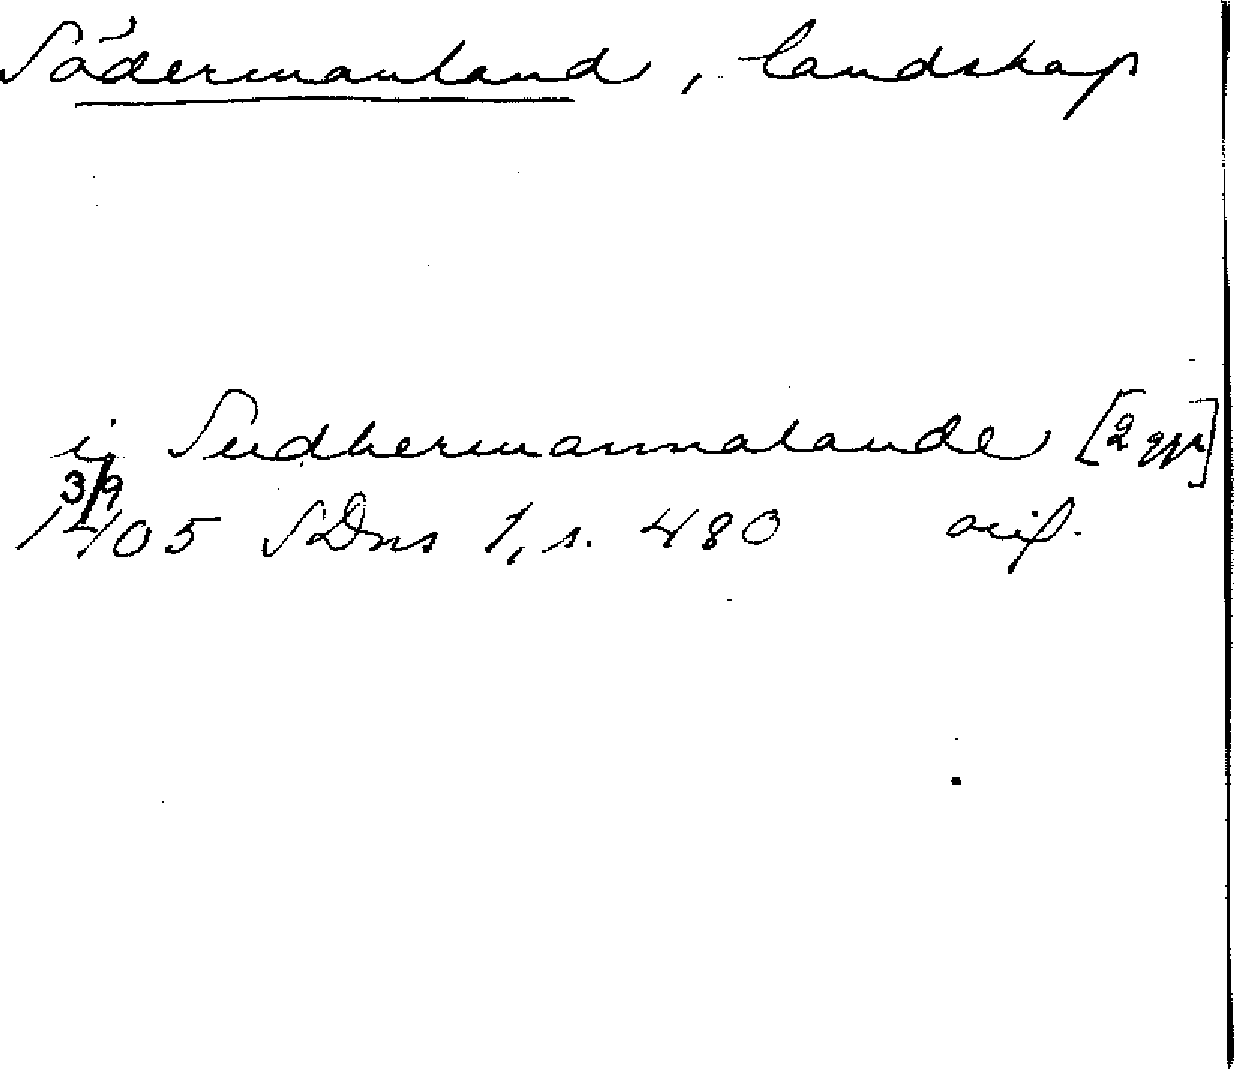 Södermanland, landskap
ij Sudhermannalande [2 ggr]
3/9
1405 SDns 1, s. 480 orig.